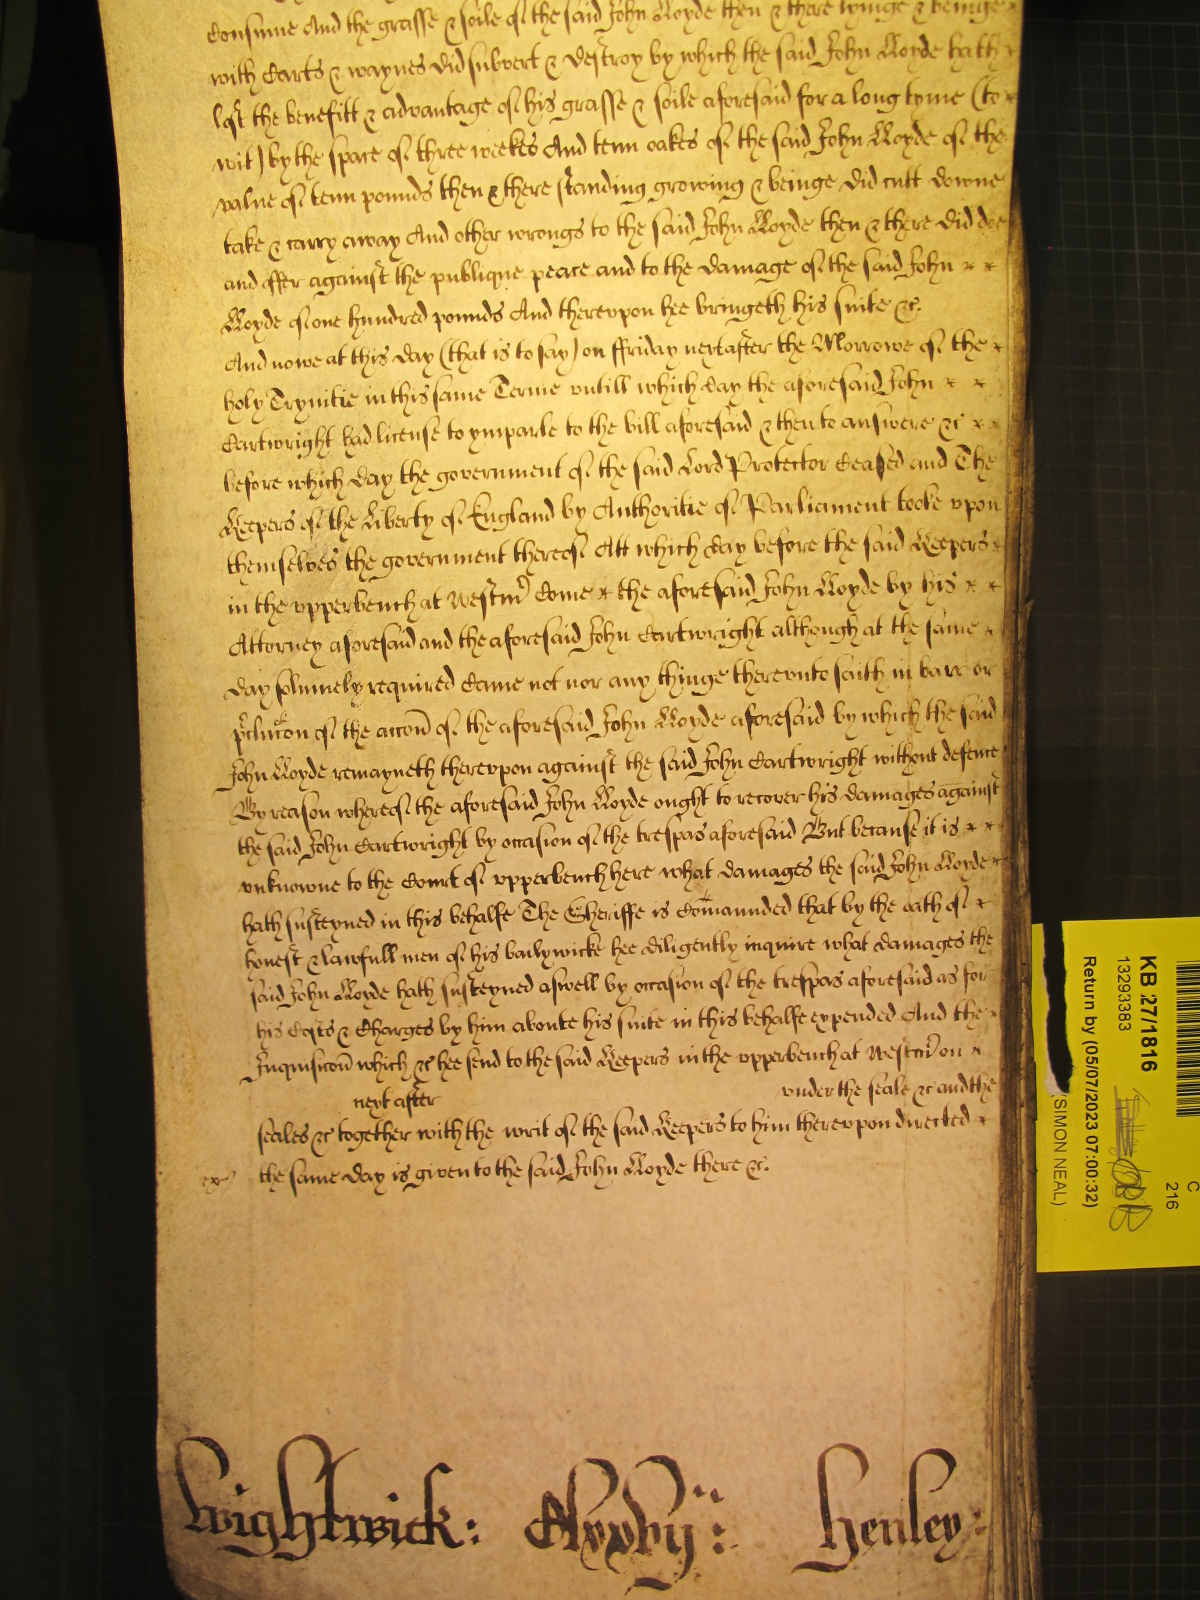 Consume And the grasse & soile of the said John Lloyde then & there lyinge & beinge
with Carts & waynes did subvert & destroy by which the said John Lloyde hath
lost the benefitt & advantage of his grasse & soile aforesaid for a long tyme (to
wit) by the space of three weekes And tenn oakes of the said John Lloyde of the
value of tenn pounds then & there standing growing & beinge did cutt downe
take & carry away And other wrongs to the said John Lloyde then & there did doe
and offer against the publique peace and to the damage of the said John
Lloyde of one hundred pounds And therevpon hee bringeth his suite &c.
And nowe at this day (that is to say) on ffriday next after the Morrowe of the
holy Trynitie in this same Terme vntill which day the aforesaid John
Cartwright had license to ymparle to the bill aforesaid & then to answere &c
before which day the government of the said Lord Protector Ceased and The
Keepers of the Liberty of England by Authoritie of Parliament tooke vpon
themselves the government thereof Att which day before the said Keepers
in the vpperbench at Westmr Come the aforesaid John Lloyde by his
Attorney aforesaid and the aforesaid John Cartwright although at the same
day solumnely required Came not nor any thinge therevnto saith in barr or
p'clucon of the accon of the aforesaid John Lloyde aforesaid by which the said
John Lloyde remayneth therevpon against the said John Cartwright without defence
By reason whereof the aforesaid John Lloyde ought to recover his damages against
the said John Cartwright by occasion of the trespas aforesaid But because it is
vnknowne to the Court of vpperbench here what damages the said John Lloyde
hath susteyned in this behalfe The Sheriffe is Comaunded that by the oath of
honest & lawfull men of his bailywicke hee diligently inquire what damages the
said John Lloyde hath susteyned aswell by occasion of the trespas aforesaid as for
his Costs & Charges by him aboute his suite in this behalfe expended And the
Inquisicon which &c hee send to the said Keepers in the vpperbench at Westmr on
next after vnder the seale &c and the
seales &c together with the writ of the said Keepers to him therevpon directed
the same day is given to the said John Lloyde there &c.
Wightwick: Henley:
KB 27/1816
13293383
Return by (05/07/2023 07:00:32)
(SIMON NEAL)
C
216